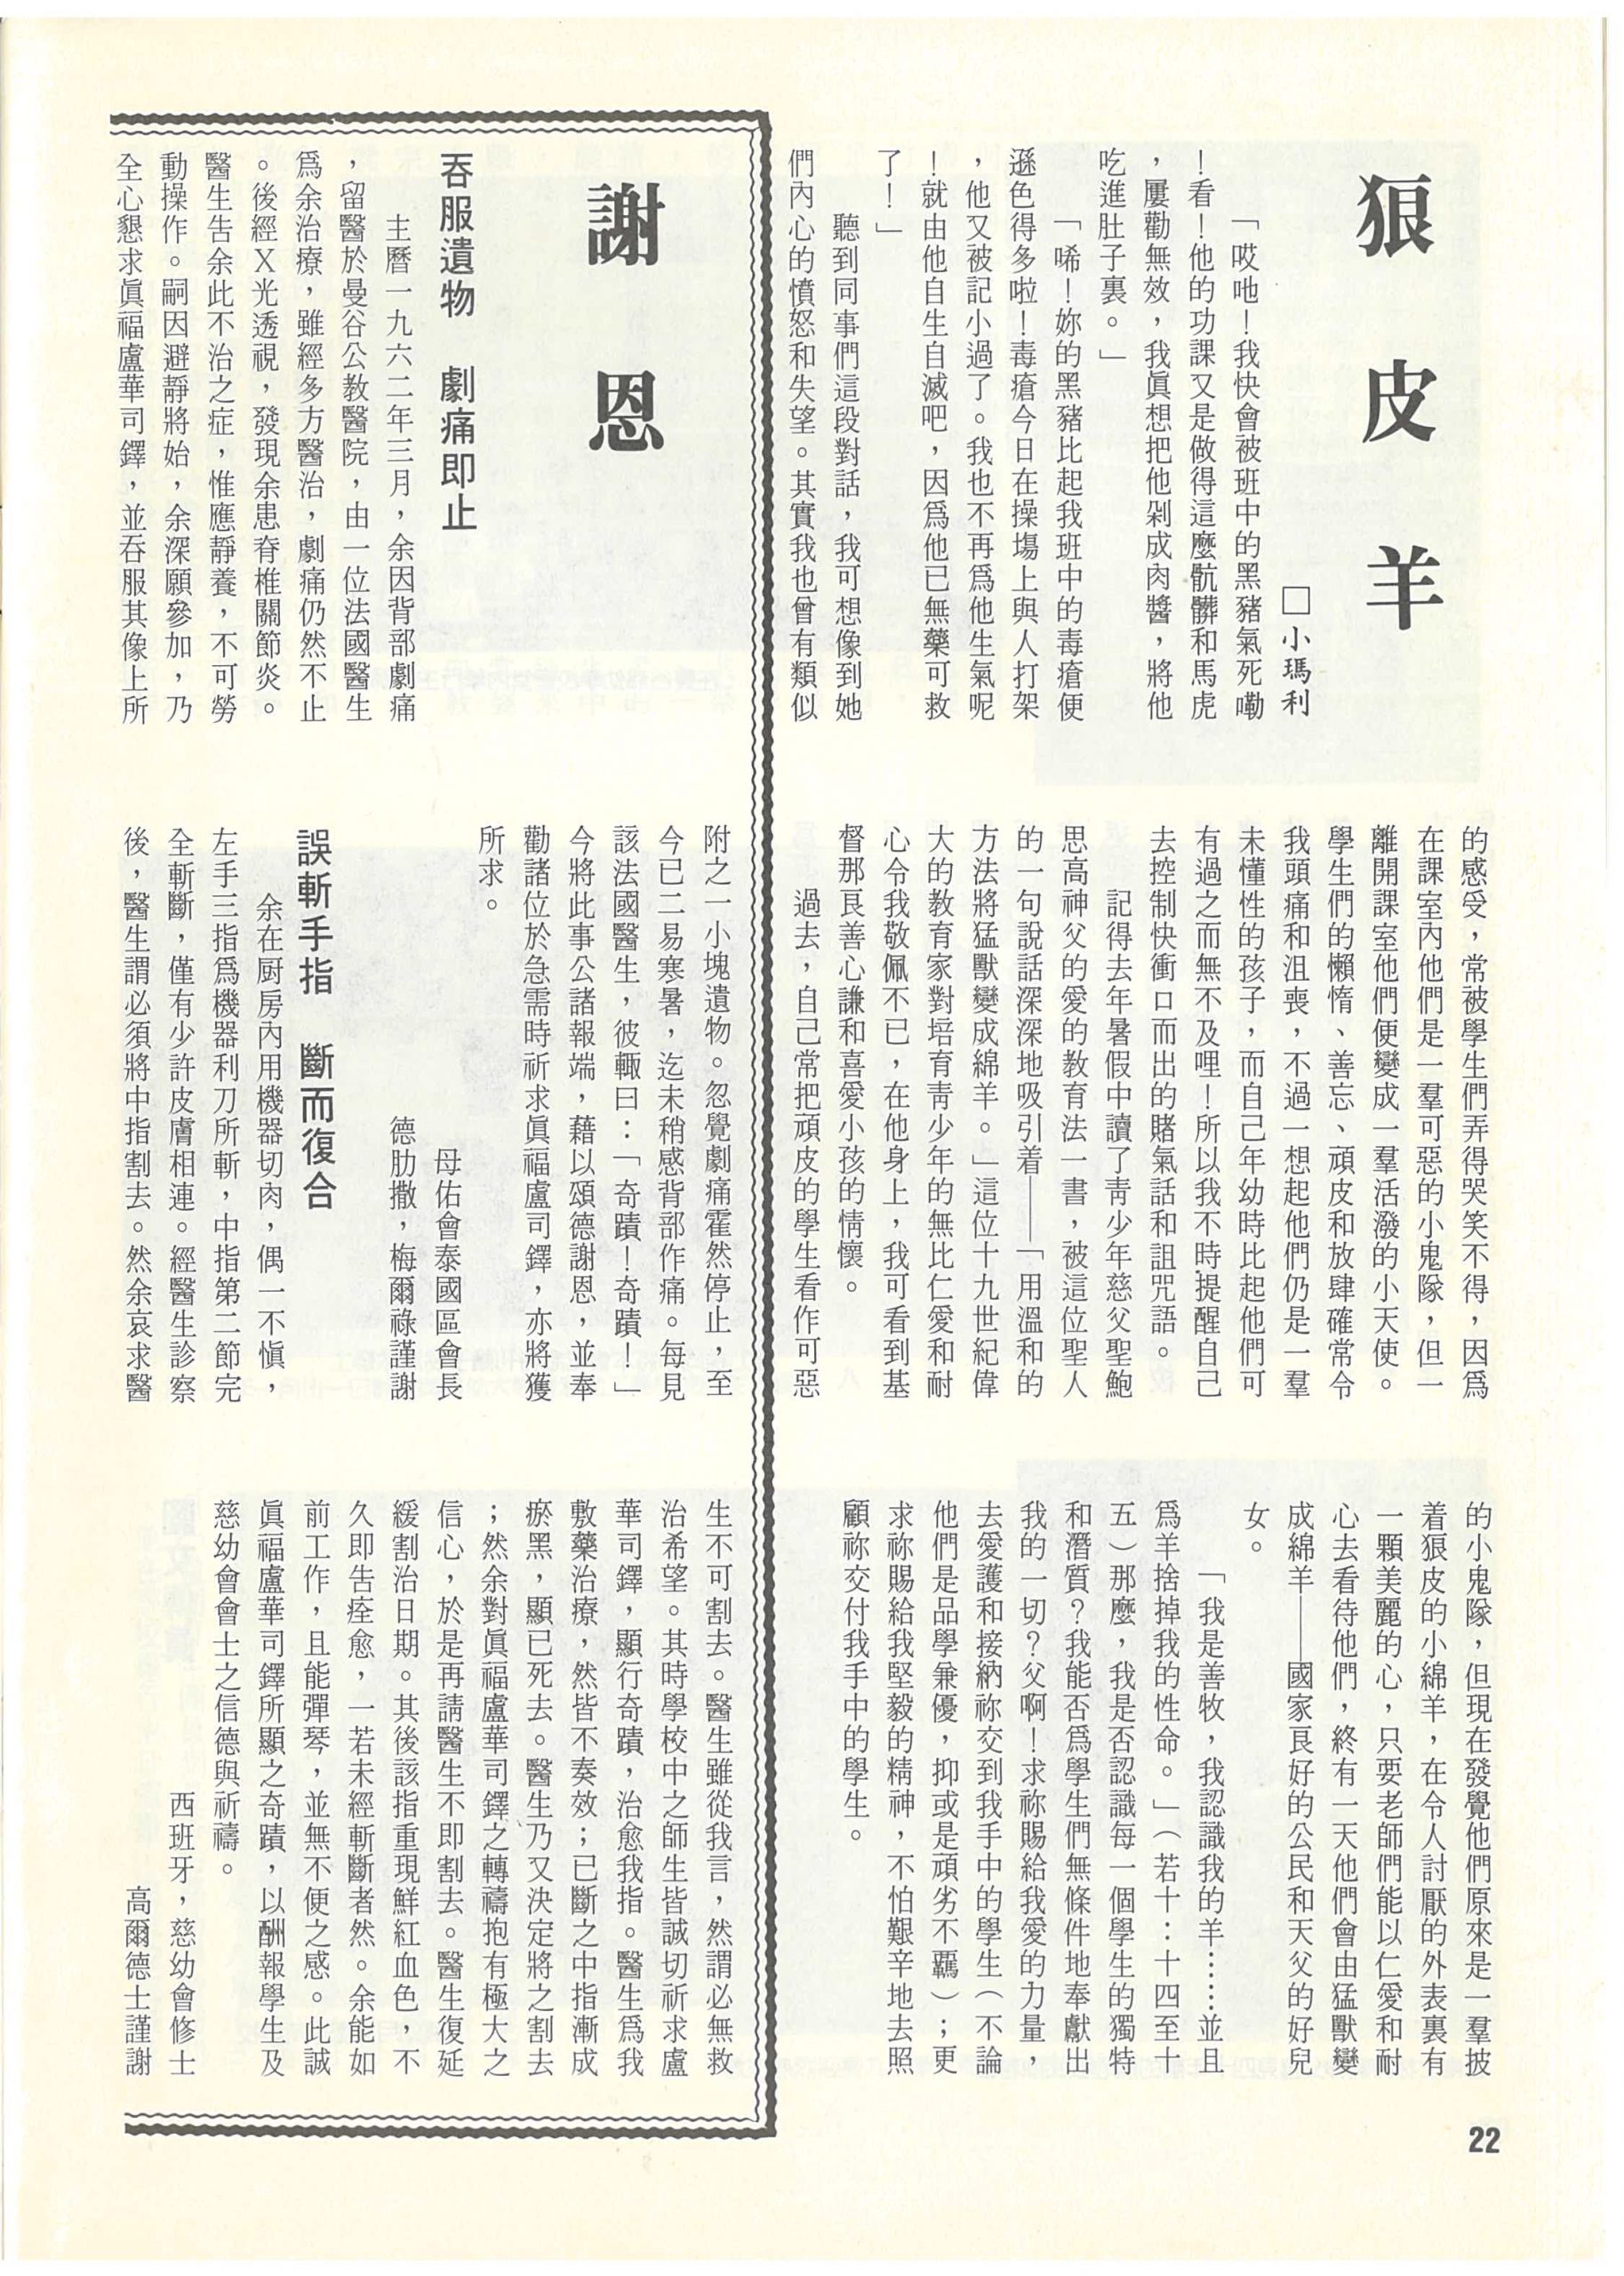 狼皮羊
□小瑪利
「哎吔！我快會被班中的黑豬氣死嘞
！看！他的功課又是做得這麼骯髒和馬虎
，屢勸無效，我眞想把他剁成肉醬，將他
吃進肚子裏。」
「唏！妳的黑豬比起我班中的毒瘡便
遜色得多啦！毒瘡今日在操塲上與人打架
，他又被記小過了。我也不再爲他生氣呢
！就由他自生自滅吧，因爲他已無藥可救
了！」
聽到同事們這段對話，我可想像到她
們內心的憤怒和失望。其實我也曾有類似
的感受，常被學生們弄得哭笑不得，因爲
在課室內他們是一羣可惡的小鬼隊，但一
離開課室他們便變成一羣活潑的小天使。
學生們的懶惰、善忘、頑皮和放肆確常令
我頭痛和沮喪，不過一想起他們仍是一羣
未懂性的孩子，而自己年幼時比起他們可
有過之而無不及哩！所以我不時提醒自己
去控制快衝口而出的賭氣話和詛咒語。
記得去年暑假中讀了靑少年慈父聖鮑
思高神父的愛的教育法一書，被這位聖人
的一句說話深深地吸引着——「用溫和的
方法將猛獸變成綿羊。」這位十九世紀偉
大的教育家對培育靑少年的無比仁愛和耐
心令我敬佩不已，在他身上，我可看到基
督那良善心謙和喜愛小孩的情懷。
過去，自己常把頑皮的學生看作可惡
的小鬼隊，但現在發覺他們原來是一羣披
着狼皮的小綿羊，在令人討厭的外表裏有
一顆美麗的心，只要老師們能以仁愛和耐
心去看待他們，終有一天他們會由猛獸變
成綿羊——國家良好的公民和天父的好兒
女。
「我是善牧，我認識我的羊……並且
爲羊捨掉我的性命。」（若十：十四至十
五）那麼，我是否認識每一個學生的獨特
和潛質？我能否爲學生們無條件地奉獻出
我的一切？父啊！求祢賜給我愛的力量，
去愛護和接納祢交到我手中的學生（不論
他們是品學兼優，抑或是頑劣不羈）；更
求祢賜給我堅毅的精神，不怕艱辛地去照
顧祢交付我手中的學生。
謝恩
吞服遺物　劇痛即止
主曆一九六二年三月，余因背部劇痛
，留醫於曼谷公教醫院，由一位法國醫生
爲余治療，雖經多方醫治，劇痛仍然不止
。後經X光透視，發現余患脊椎關節炎。
醫生吿余此不治之症，惟應靜養，不可勞
動操作。嗣因避靜將始，余深願參加，乃
全心懇求眞福盧華司鐸，並吞服其像上所
附之一小塊遺物。忽覺劇痛霍然停止，至
今已二易寒暑，迄未稍感背部作痛。每見
該法國醫生，彼輒曰：「奇蹟！奇蹟！」
今將此事公諸報端，藉以頌德謝恩，並奉
勸諸位於急需時祈求眞福盧司鐸，亦將獲
所求。
母佑會泰國區會長
德肋撒，梅爾祿謹謝
誤斬手指　斷而復合
余在厨房內用機器切肉，偶一不愼，
左手三指爲機器利刀所斬，中指第二節完
全斬斷，僅有少許皮膚相連。經醫生診察
後，醫生謂必須將中指割去。然余哀求醫
生不可割去。醫生雖從我言，然謂必無救
治希望。其時學校中之師生皆誠切祈求盧
華司鐸，顯行奇蹟，治愈我指。醫生爲我
敷藥治療，然皆不奏效；已斷之中指漸成
瘀黑，顯已死去。醫生乃又決定將之割去
；然余對眞福盧華司鐸之轉禱抱有極大之
信心，於是再請醫生不即割去。醫生復延
緩割治日期。其後該指重現鮮紅血色，不
久即吿痊愈，一若未經斬斷者然。余能如
前工作，且能彈琴，並無不便之感。此誠
眞福盧華司鐸所顯之奇蹟，以酬報學生及
慈幼會會士之信德與祈禱。
西班牙，慈幼會修士
高爾德士謹謝
22